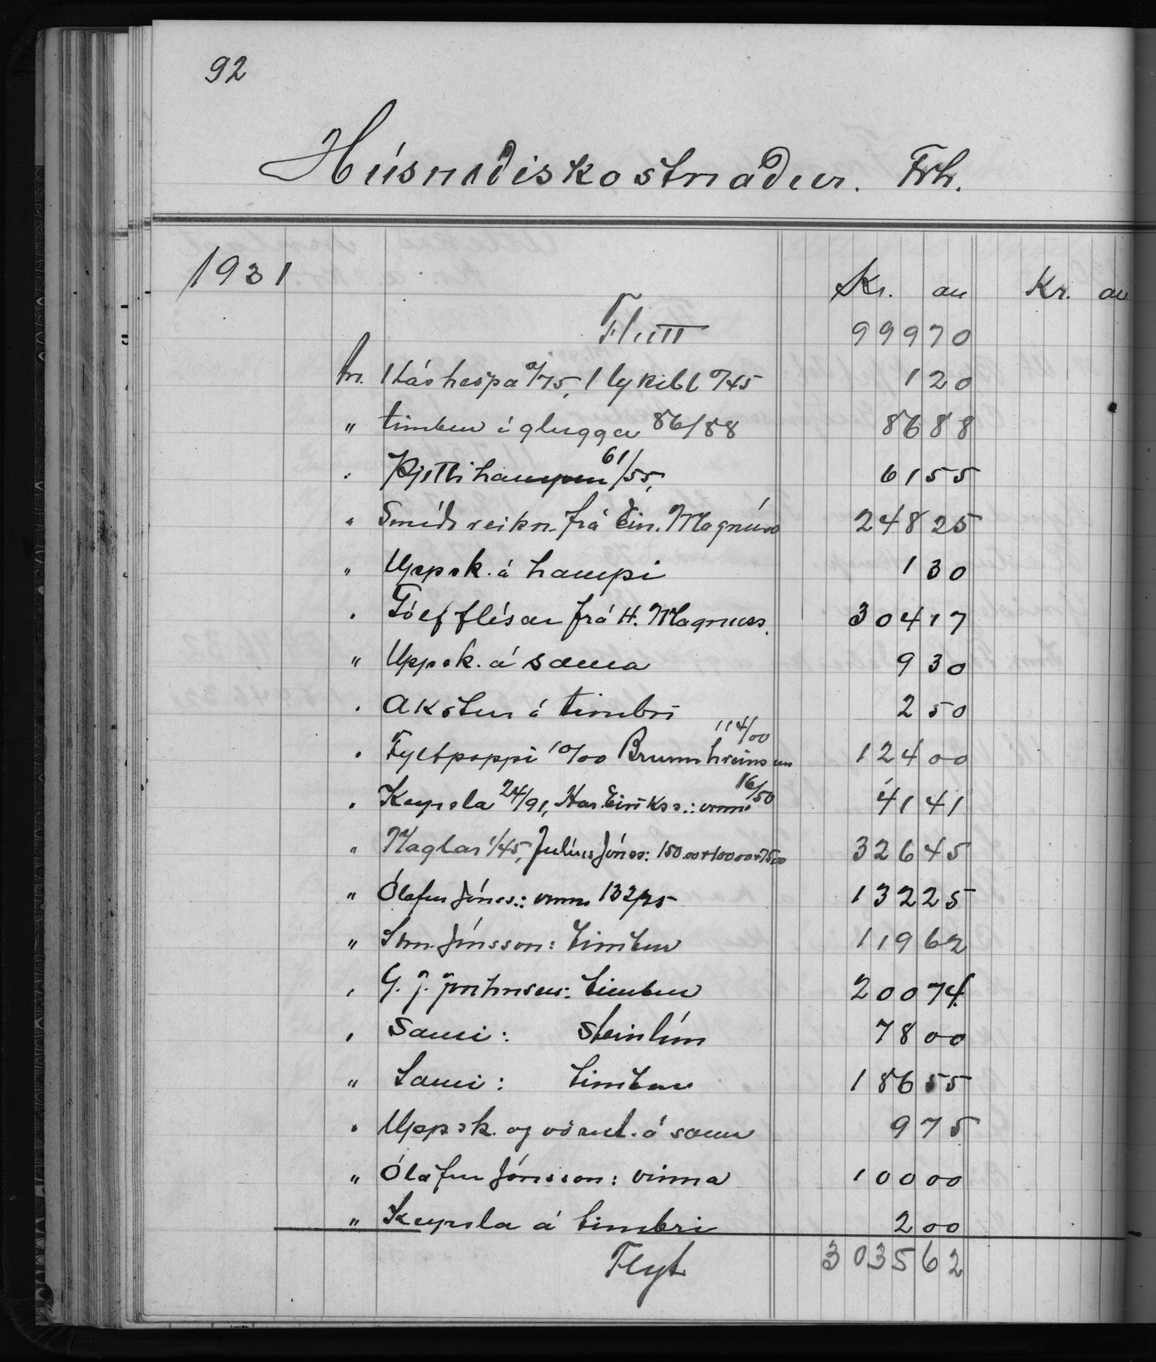 92
Húsnæðiskostnaður. Frh.
1931 Kr. au Kr. au
Flutt 999 70
Pr. 1 láshespa 0/75, 1 lykill 0/45 1 20
" timbur í glugga 86/88 86 88
" hampur 61/55 61 55
" Smíði reikn. frá Ein. Magnúss 248 25
" Uppsk. á hampi 1 30
" Gólfflísar frá H. Magnúss. 304 17
" Uppsk. á sama 9 30
" Akstur á timbri 2 50
114/00
" Fyltpappi 10/00 Brunnhreinsun 124 00
16/50
" Keyrsla 24/91, Har. Eirikss.: vinna 41 41
" Naglar 1/45, Júlíus Jónss: 150 00+100 00+75 00 326 45
" Ólafur Jónss.: vinna 132/25 132 25
" Sim. Jónsson: timbur 119 62
" G. J. Johnsen: timbur 200 74
" Sami: Steinlím 78 00
" Sami: timbur 186 55
" Uppsk. og á sama 9 75
" Ólafur Jónsson: vinna 100 00
" Keyrsla á timbri 2 00
Flyt 3035 62